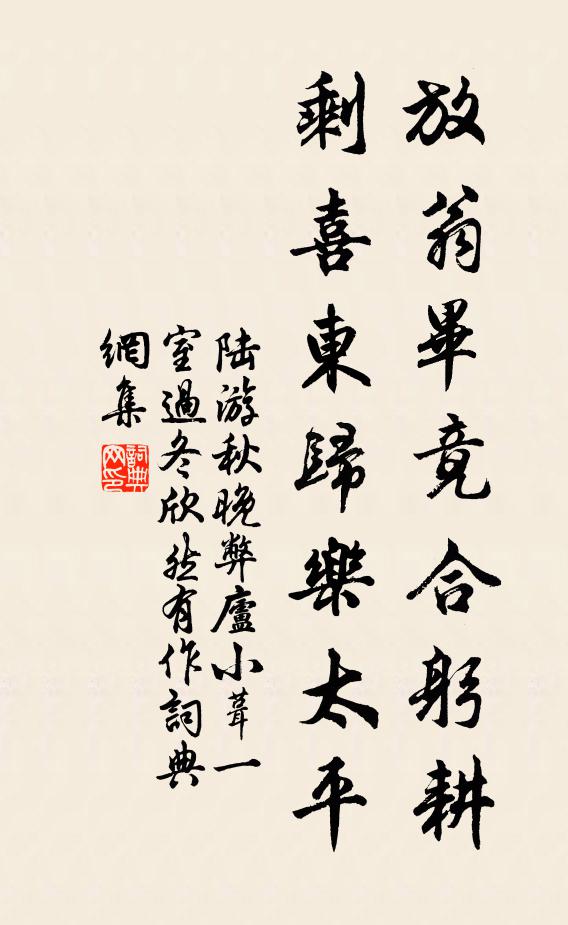 放翁畢竟合躬耕
剩喜東歸樂太平
陆游秋晚弊廬小葺一
室過冬欣然有作詞典
網集
詞典
网印